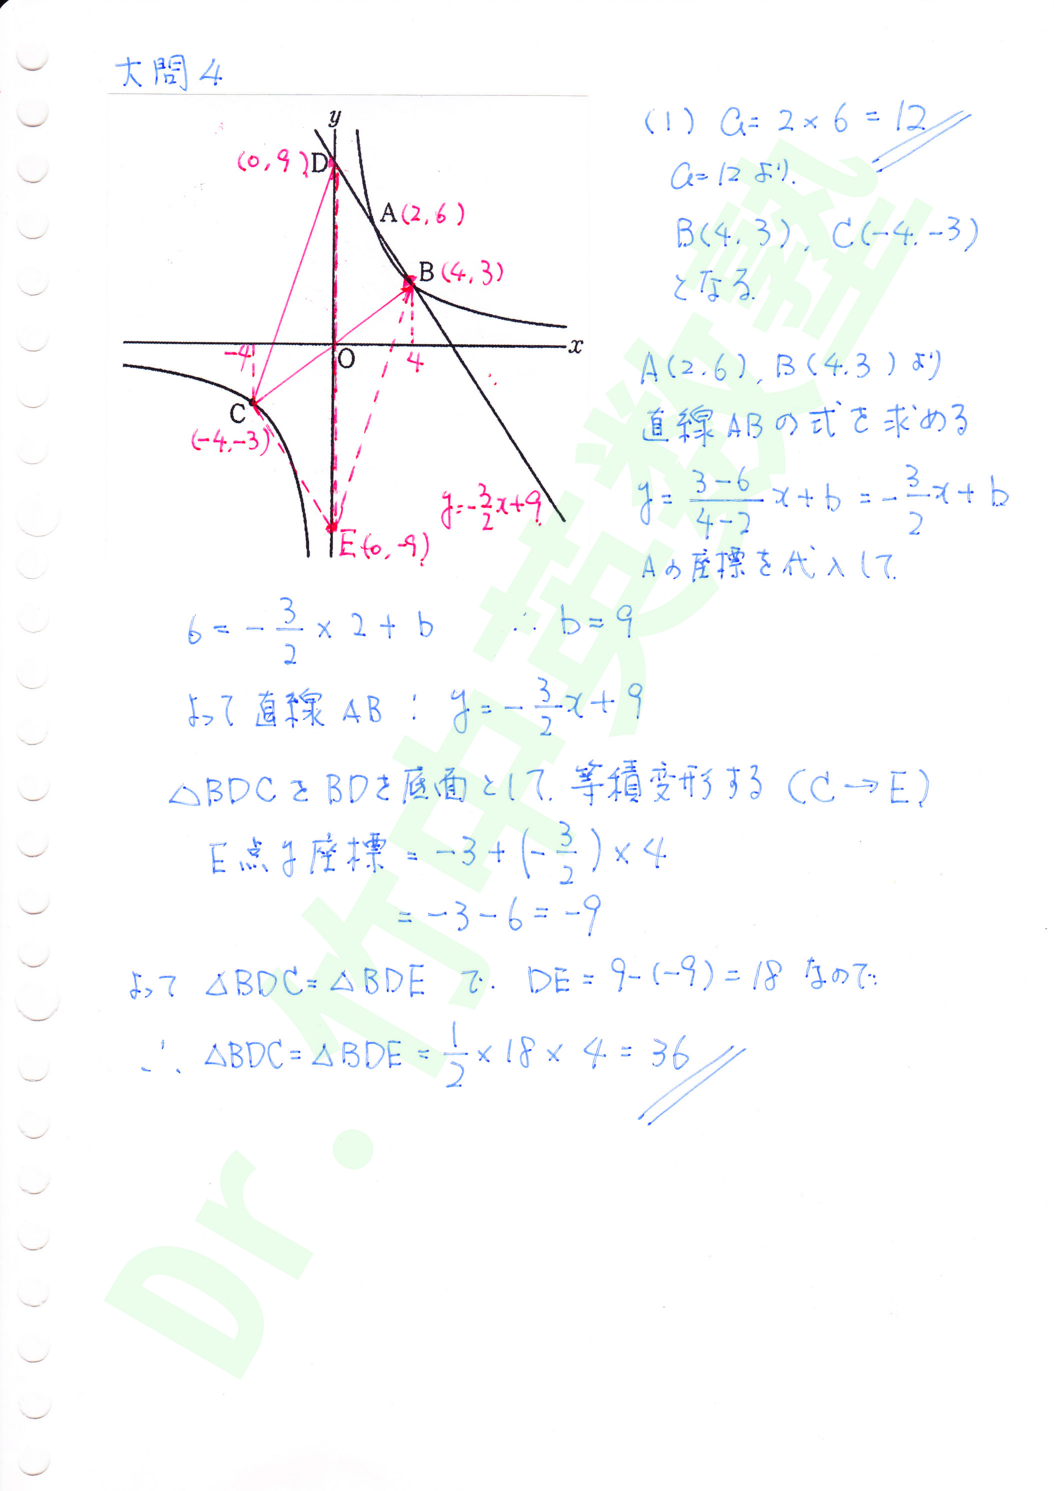 大問4
y
(0, 9) D
A(2, 6)
B(4, 3)
-4
O
4
x
C
(-4, -3)
y=-3/2x+9
E(0, -9)
(1) a= 2×6 = 12
a=12より、
B(4, 3)、C(-4, -3)
となる
A(2, 6)、B(4, 3)より
直線ABの式を求める
y= (3-6)/(4-2) x+b = -3/2 x+b
Aの座標を代入して、
6 = -3/2 × 2 + b ∴ b=9
よって直線AB : y=-3/2x+9
△BDCをBDを底面として、等積変形する (C→E)
E点y座標 = -3+(-3/2)×4
= -3-6 = -9
よって △BDC=△BDE で、 DE = 9-(-9) = 18 なので
∴ △BDC=△BDE = 1/2 × 18 × 4 = 36
Dr.竹中英数塾